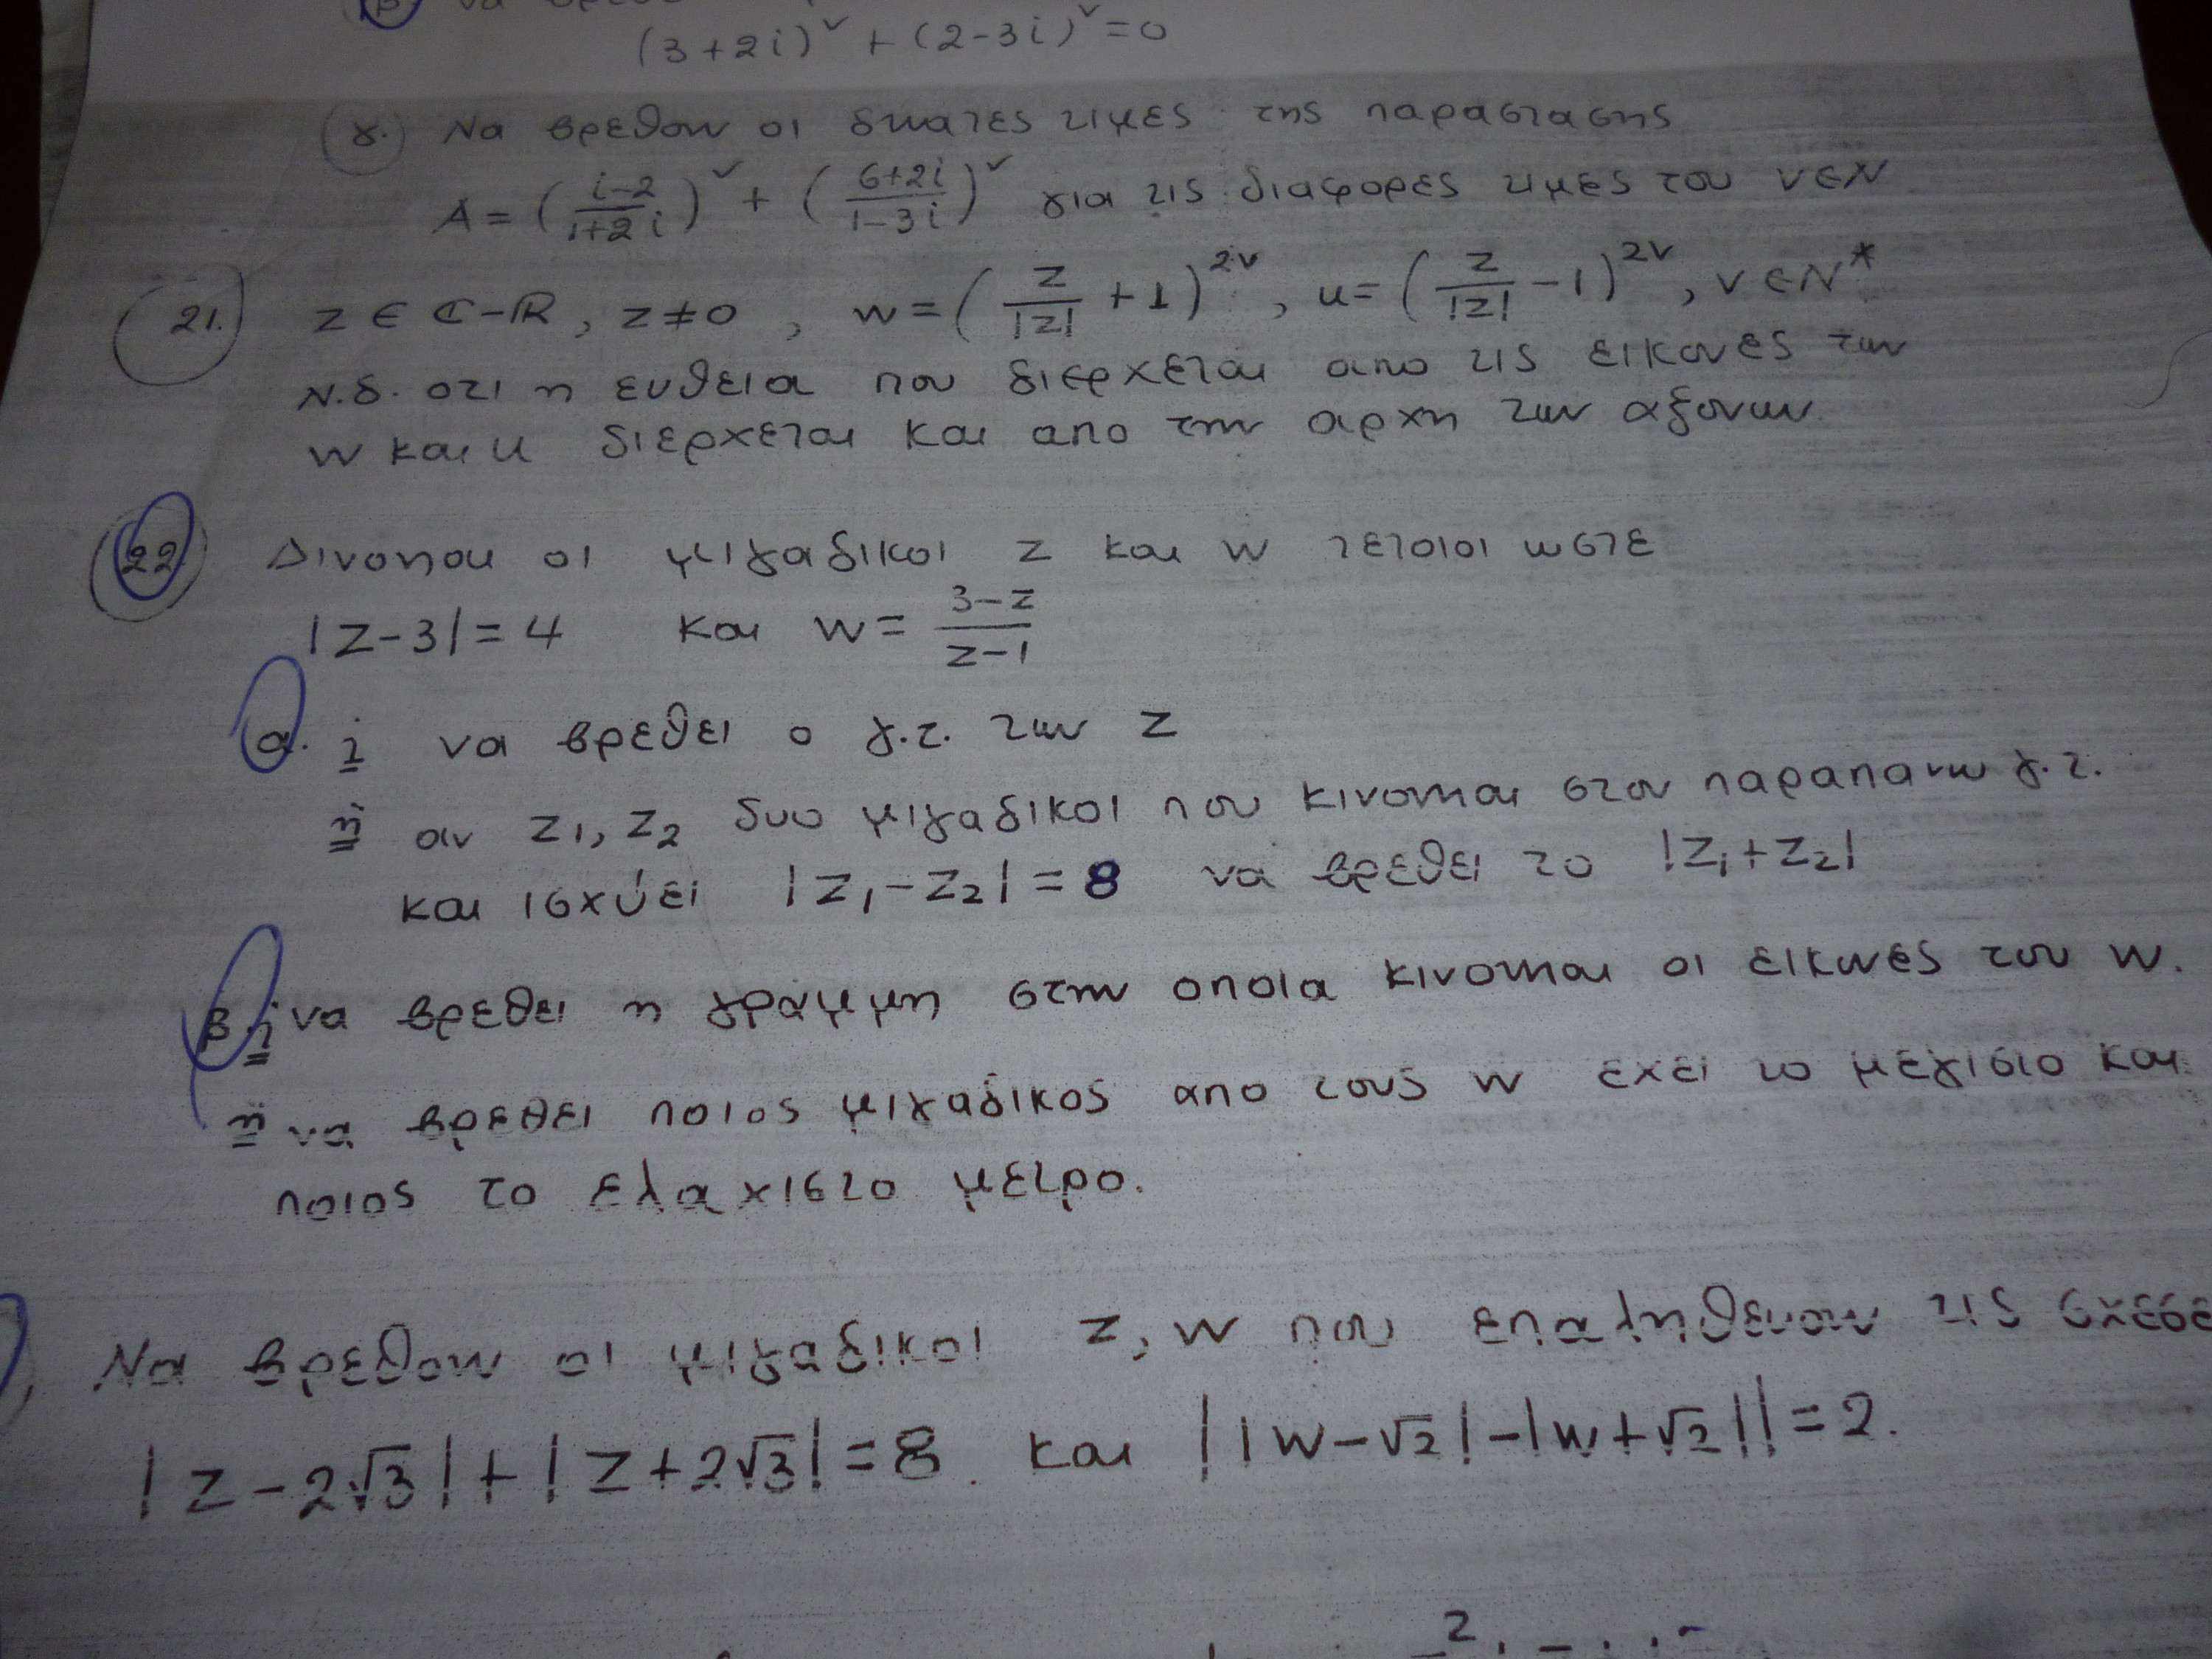 β
(3+2i)^ν + (2-3i)^ν = 0
γ. Να βρεθουν οι δυνατες τιμες της παραστασης
A = ((i-2)/(1+2i))^ν + ((6+2i)/(1-3i))^ν για τις διαφορες τιμες του ν∈N
21. z ∈ ℂ-ℝ, z≠0, w = (z/|z| + 1)^2ν, u = (z/|z| - 1)^2ν, ν∈N*
Ν.δ. οτι η ευθεια που διερχεται απο τις εικονες των
w και u διερχεται και απο την αρχη των αξονων.
22. Δινονται οι μιγαδικοι z και w τετοιοι ωστε
|z-3| = 4 και w = (3-z)/(z-1)
α. i να βρεθει ο γ.τ. των z
ii αν z₁, z₂ δυο μιγαδικοι που κινονται στον παραπανω γ.τ.
και ισχύει |z₁-z₂| = 8 να βρεθει το |z₁+z₂|
β. i να βρεθει η γραμμη στην οποια κινονται οι εικονες του w.
ii να βρεθει ποιος μιγαδικος απο τους w εχει το μεγιστο και
ποιος το ελαχιστο μετρο.
Να βρεθουν οι μιγαδικοι z, w που επαληθευουν τις σχεσε
|z-2√3| + |z+2√3| = 8 και ||w-√2|-|w+√2|| = 2.